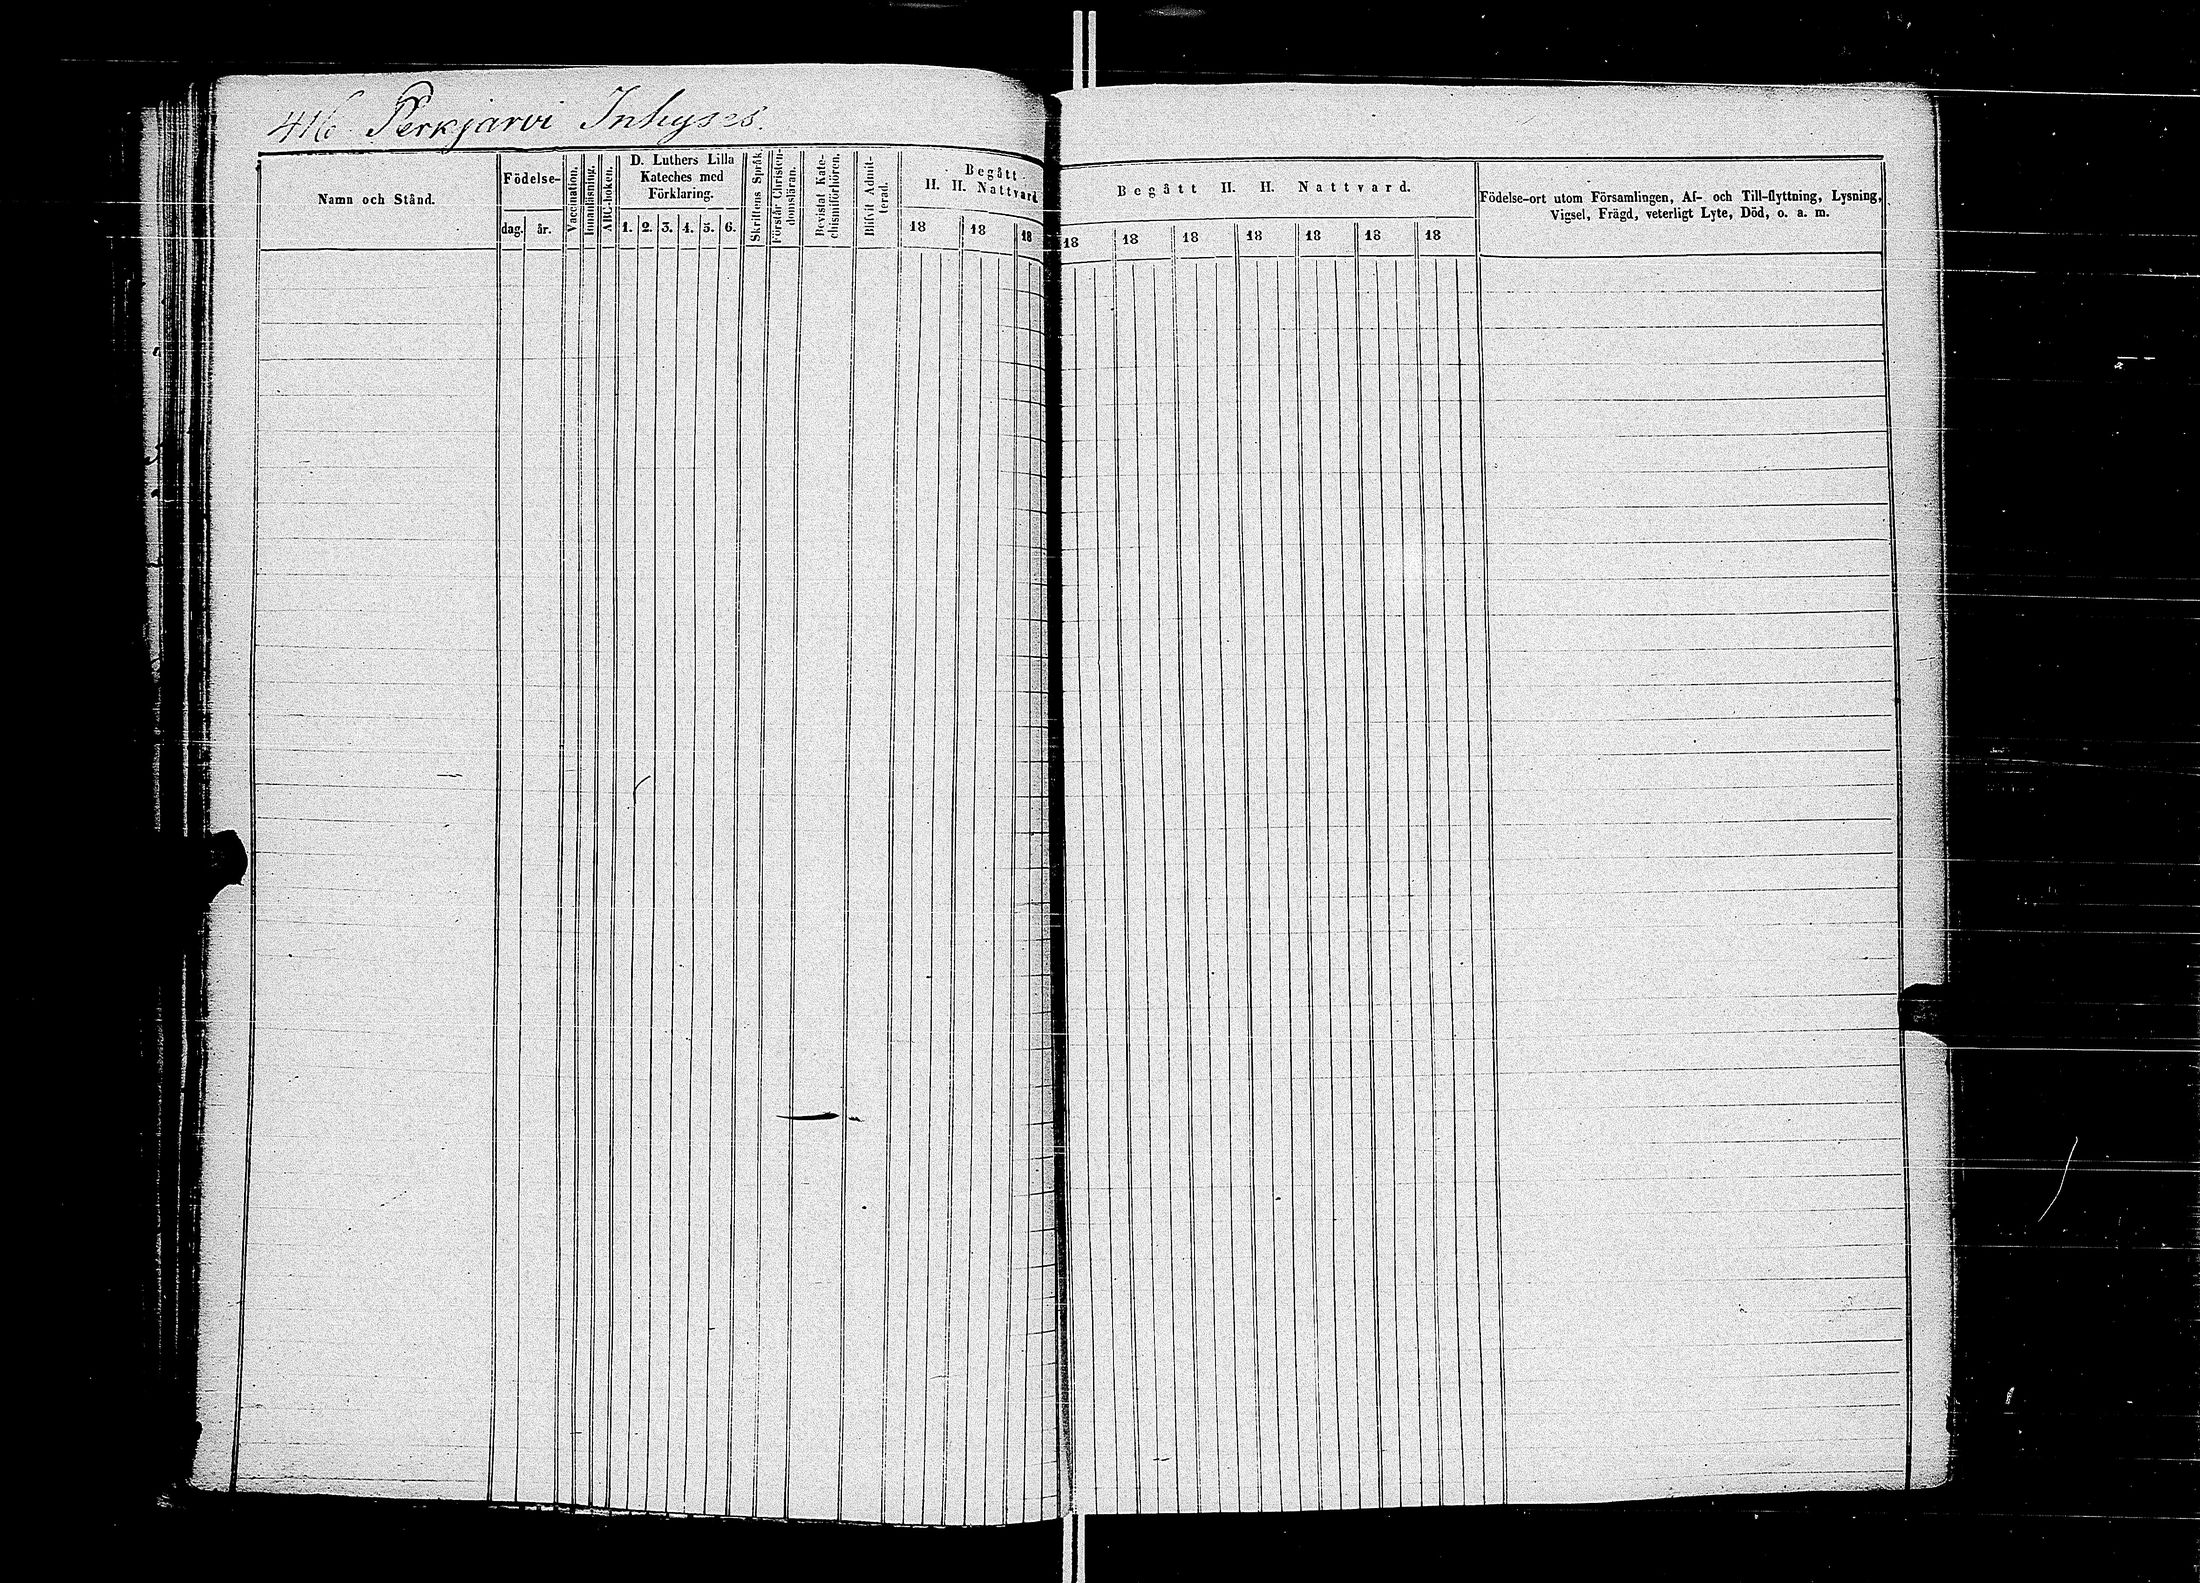 416. Perkjärvi Inhyses.
Namn och Stånd.
Födelse-
dag.
år.
Vaccination.
Innanläsning.
ABC-boken.
D. Luthers Lilla
Kateches med
Förklaring.
1. 2. 3. 4. 5. 6.
Skriftens Språk.
Förstår Christen-
domsläran.
Bevistat Kate-
chismiförhören.
Blifvit Admit-
terad.
Begått
H. H. Nattvard
18 18 18
Begått H. H. Nattvard.
18 18 18 18 18 18 18
Födelse-ort utom Församlingen, Af- och Till-flyttning, Lysning,
Vigsel, Frägd, veterligt Lyte, Död, o. a. m.